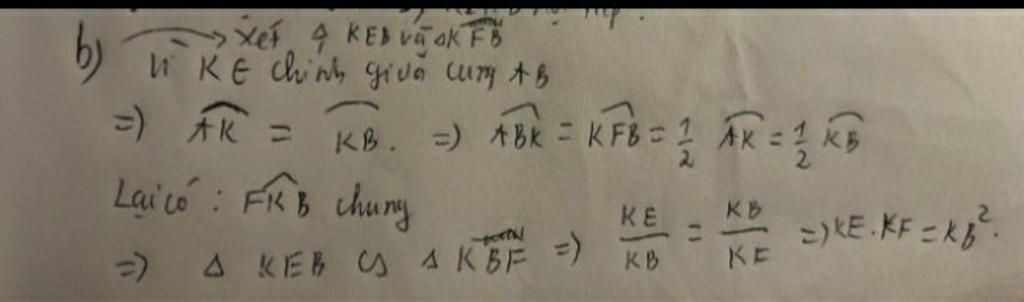 b) Xét Δ KEB và ΔKFB
Vì K ∈ chính giữa cung AB
=) AK = KB. =) ABK = KFB = 1/2 AK = 1/2 KB
Lại có : FKB chung
=) Δ KEB ∽ Δ KBF =) KE/KB = KB/KF =) KE.KF = KB².